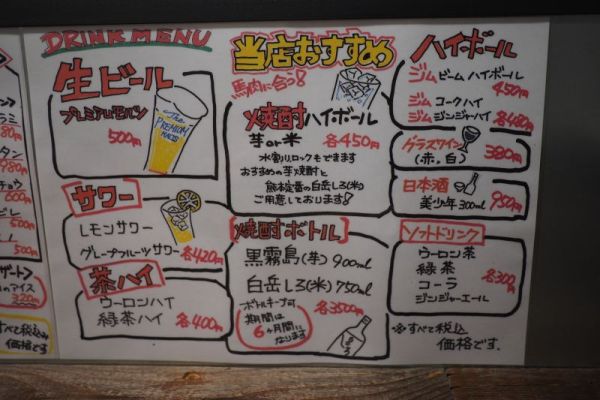 DRINK MENU
生ビール
プレミアム モルツ
500円
The
PREMIUM
MALTS
サワー
レモンサワー
グレープフルーツサワー 各420円
茶ハイ
ウーロンハイ
緑茶ハイ 各400円
当店おすすめ
馬肉に合う!
焼酎ハイボール
芋or米 各450円
水割り、ロックもできます
おすすめの芋焼酎と
熊本定番の白岳しろ(米)を
ご用意しております!
焼酎ボトル
黒霧島(芋) 900ml
白岳しろ(米) 750ml
各3500円
ボトルキープ可
期間は
6ヶ月間に
なります
ハイボール
ジムビームハイボール
450円
ジムコークハイ
ジムジンジャーハイ 各480円
グラスワイン
(赤。白) 380円
日本酒
美少年300ml 950円
ソフトドリンク
ウーロン茶
緑茶
コーラ
ジンジャーエール
各300円
※すべて税込
価格です.
タン
980円
500円
アイス
320円
すべて税込み
価格です